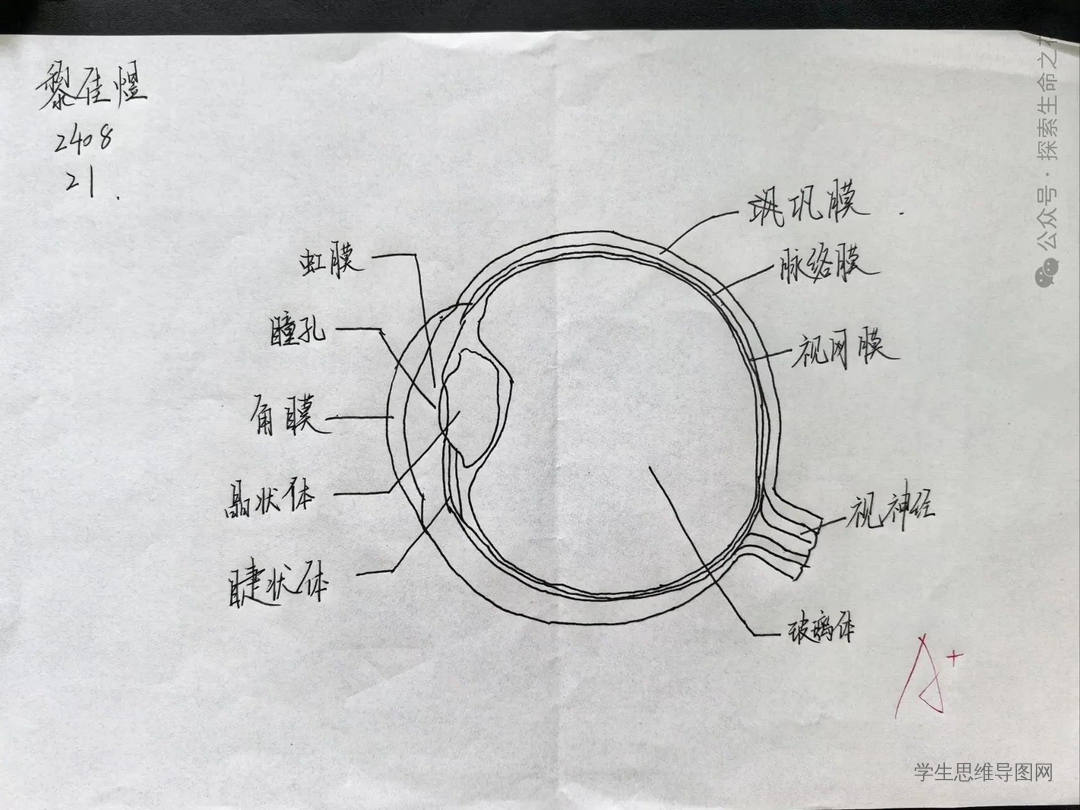 黎佳煜
2408
21.
巩巩膜
脉络膜
视网膜
视神经
玻璃体
虹膜
瞳孔
角膜
晶状体
睫状体
A+
公众号·探索生命之
学生思维导图网